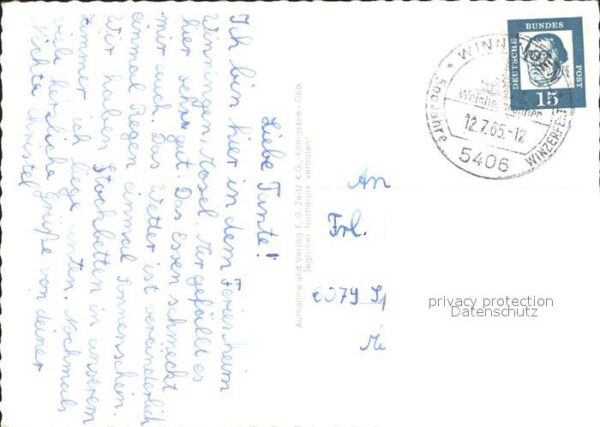 Liebe Tante!
Ich bin hier in dem Ferienheim
Winningen, Mosel. Mir gefällt es
hier sehr gut. Das Essen schmeckt
mir auch. Das Wetter ist veränderlich
einmal Regen einmal Sonnenschein.
Wir haben Stockbetten in unserem
Zimmer ich liege unten. Nochmals
viele herzliche Grüße von deiner
Nichte Christel
Aufnahme und Verlag F. G. Zeitz KG., Königssee-Obb.
Jeglicher Nachdruck verboten!
DEUTSCHE
BUNDES
POST
15
WINNINGEN
12.7.65.-12
5406
WINZERFEST
An
Frl.
privacy protection
Datenschutz